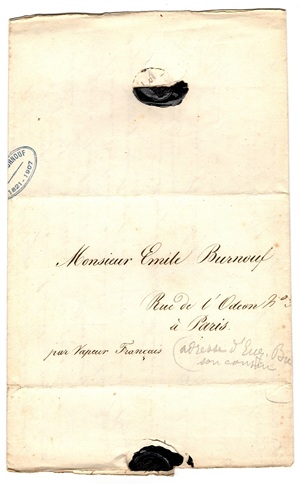 BURNOUF
1821-1907
Monsieur Emile Burnouf
Rue de l'Odeon No 3
à Paris.
par Vapeur Français
(adresse d'Eug. Bu
son cousin